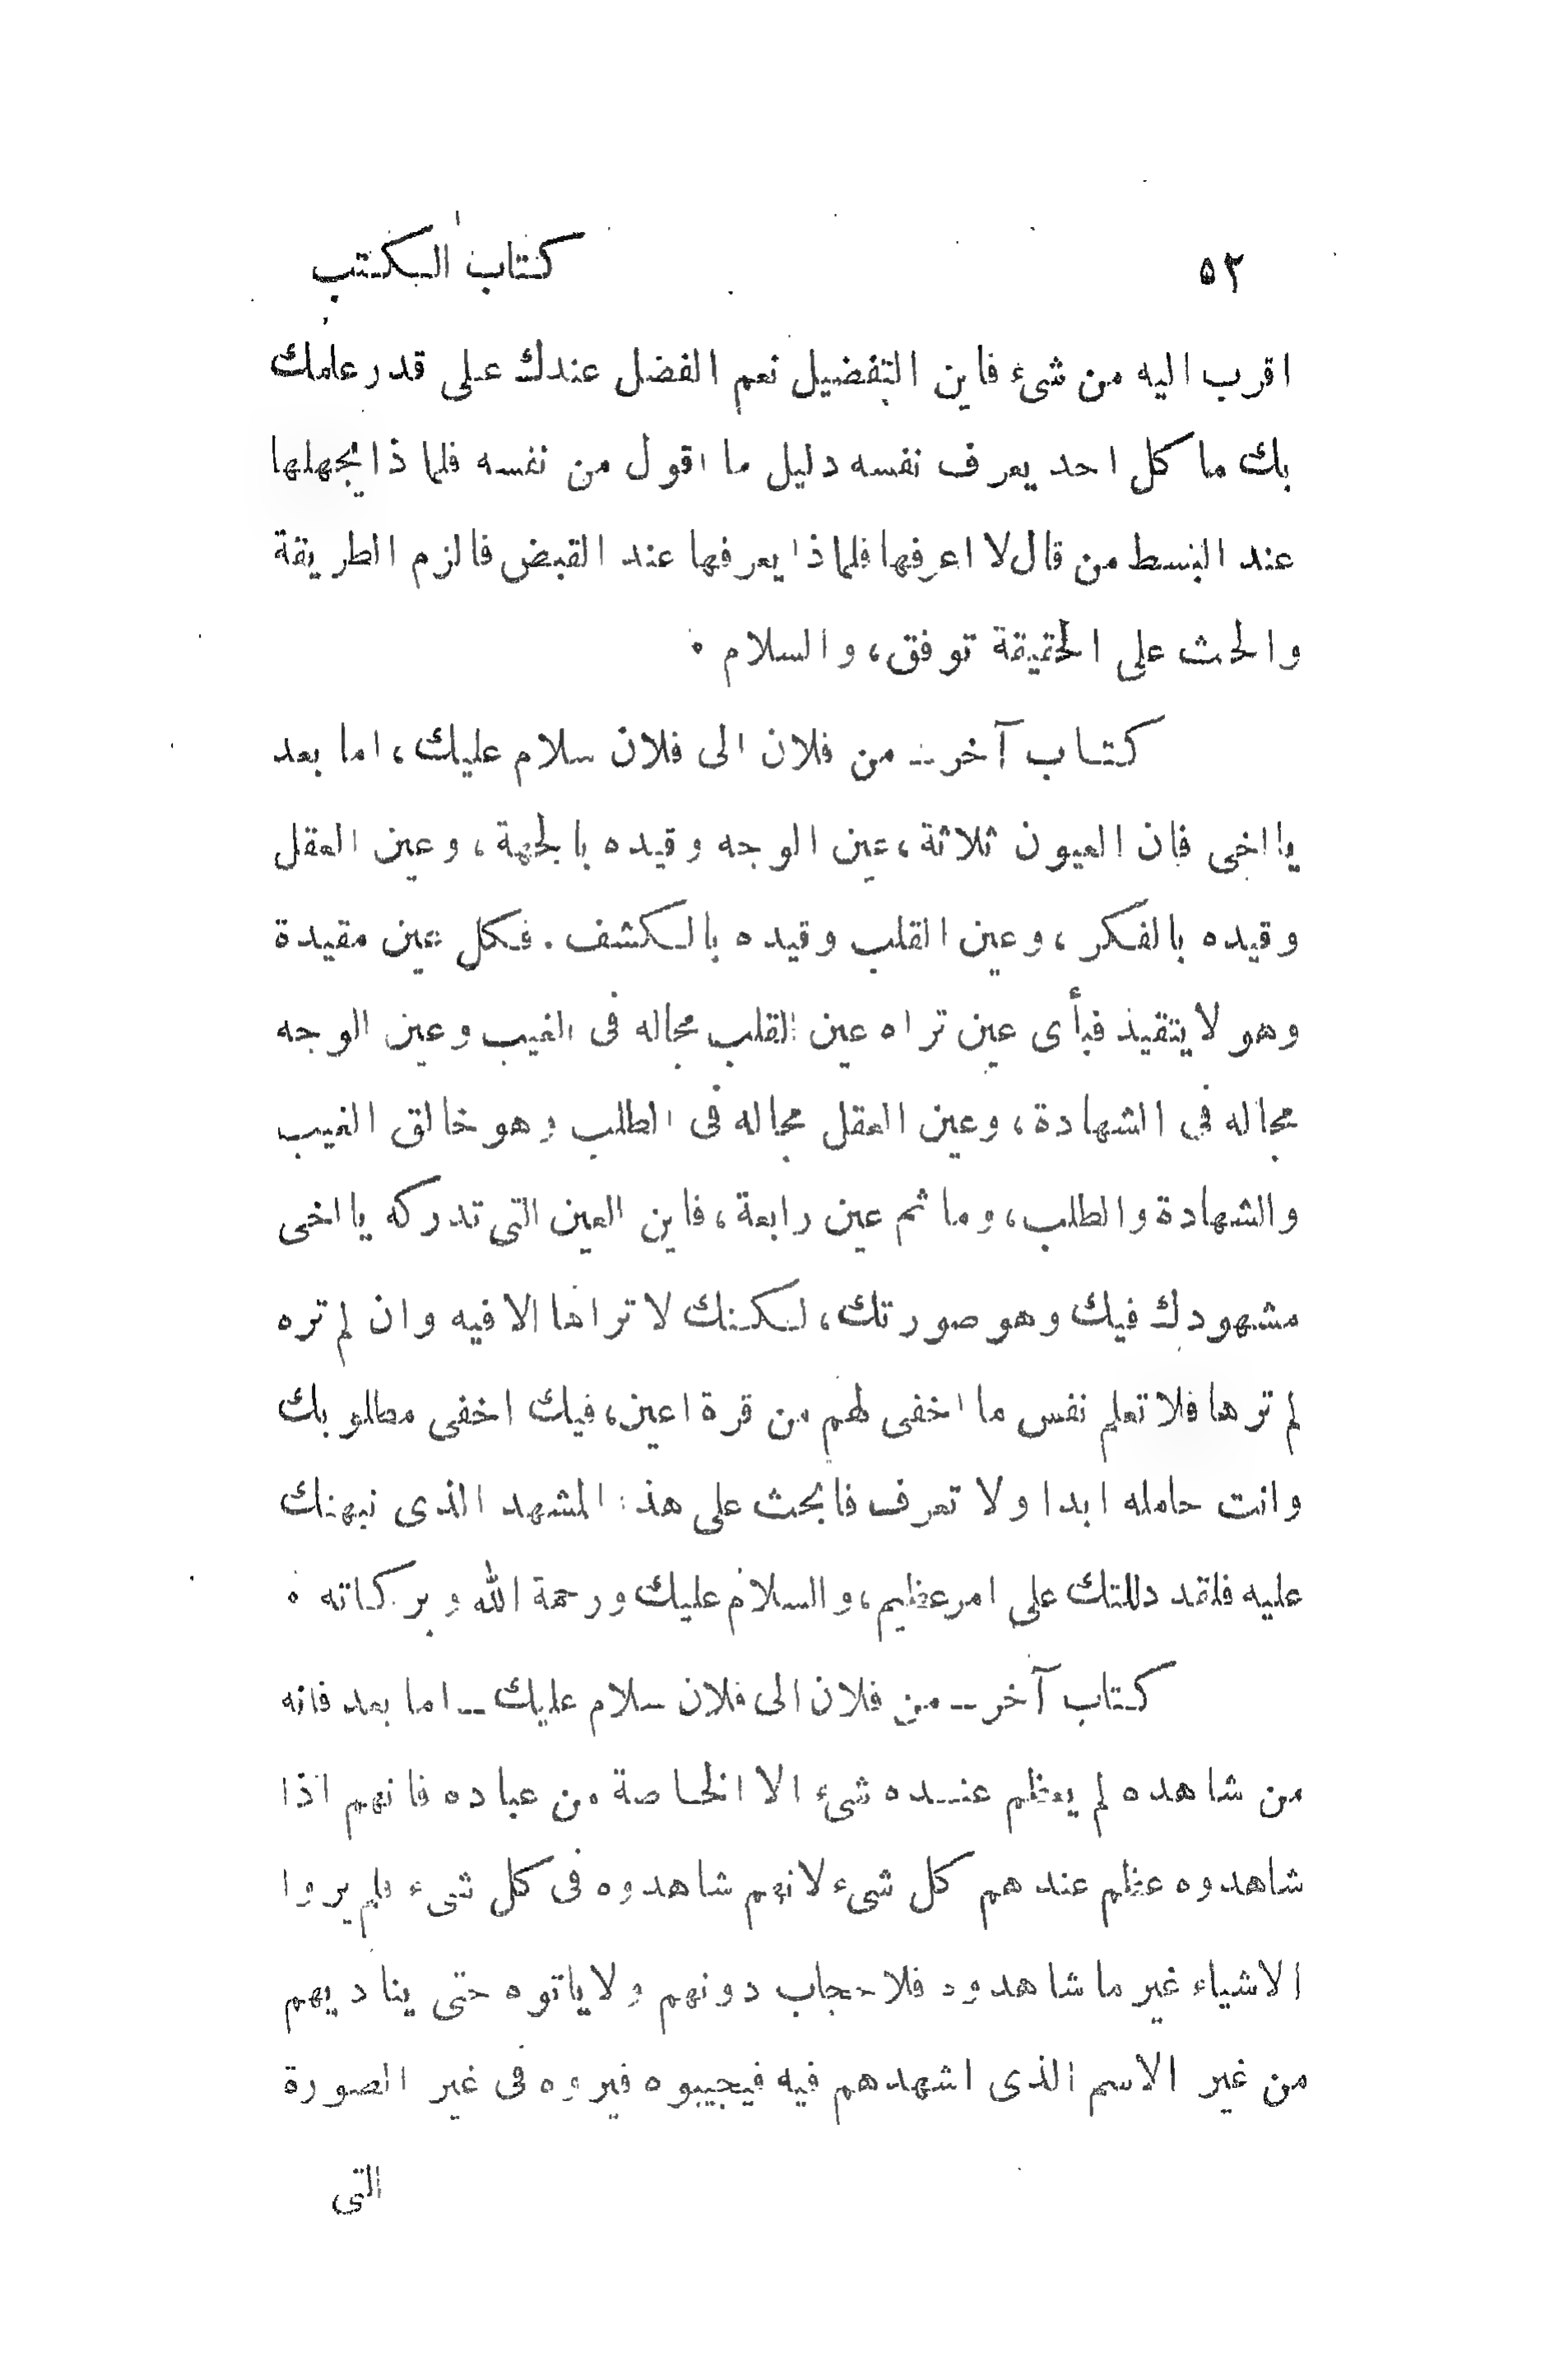 ٥٢ كتاب الكتب
اقرب اليه من شىء فاين التفضيل نعم الفضل عندك على قدر علمك
بك ما كل احد يعرف نفسه دليل ما اقول من نفسه فلما ذا يجهلها
عند البسط من قال لا اعرفها فلما ذا يعرفها عند القبض فالزم الطريقة
والحث على الحقيقة توفق، والسلام ٠
كتاب آخر ــ من فلان الى فلان سلام عليك، اما بعد
يا اخى فان العيون ثلاثة، عين الوجه وقيده بالجهة، وعين العقل
وقيده بالفكر، وعين القلب وقيده بالكشف. فكل عين مقيدة
وهو لا يتقيد فبأى عين تراه عين القلب مجاله فى الغيب وعين الوجه
مجاله فى الشهادة، وعين العقل مجاله فى الطلب وهو خالق الغيب
والشهادة والطلب، وما ثم عين رابعة، فاين العين التى تدركه يا اخى
مشهودك فيك وهو صورتك، لكنك لا تراها الا فيه وان لم تره
لم ترها فلا تعلم نفس ما اخفى لهم من قرة اعين، فيك اخفى مطلوبك
وانت حامله ابدا ولا تعرف فابحث على هذا المشهد الذى نبهتك
عليه فلقد دللتك على امر عظيم، والسلام عليك ورحمة الله وبركاته ٠
كتاب آخر ــ من فلان الى فلان سلام عليك ــ اما بعد فانه
من شاهده لم يعظم عنده شىء الا الخاصة من عباده فانهم اذا
شاهدوه عظم عندهم كل شىء لانهم شاهدوه فى كل شىء فلم يروا
الاشياء غير ما شاهدوه فلا حجاب دونهم ولا ياتوه حتى يناديهم
من غير الاسم الذى اشهدهم فيه فيجيبوه فيروه فى غير الصورة
التى